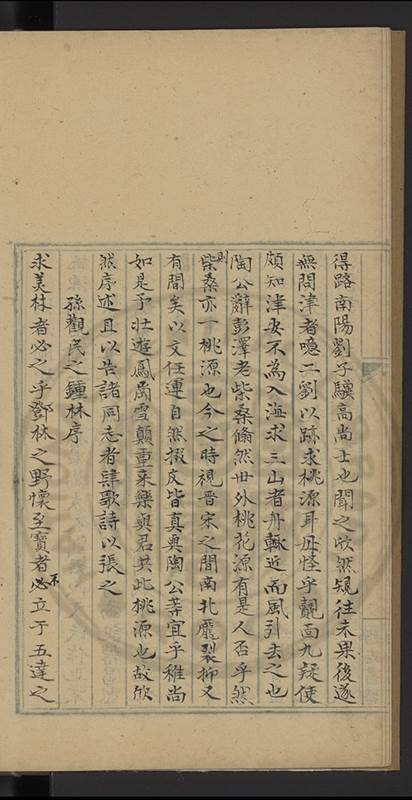 得路南陽劉子驥高尚士也聞之欣然規往未果後遂
無問津者噫二劉以跡求桃源耳毋怪乎覿面九疑使
頗知津安不為入海求三山者舟輒近而風引去之也
陶公辭彭澤老柴桑翛然世外桃花源有是人否乎然
則柴桑亦一桃源也今之時視晉宋之間南北龐裂抑又
有間矣以文任運自然掇皮皆真與陶公等宜乎稚尚
如是予壯遊鳳雪顛重来樂與君共此桃源也故欣
然序述且以告諸同志者肆歌詩以張之
孫觀民之鍾林序
求美林者必之乎鄧林之野懷至寶者必不立于五達之